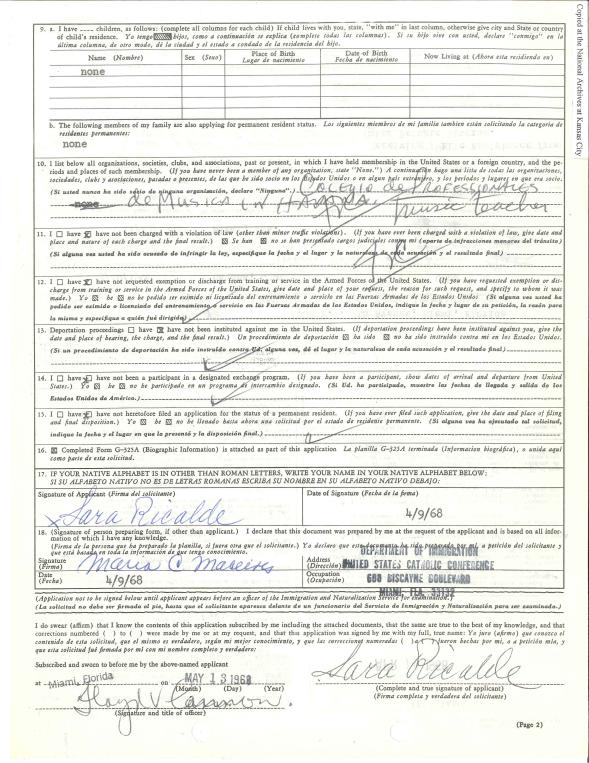 9. a. I have ---- children, as follows: (complete all columns for each child) If child lives with you, state, "with me" in last column, otherwise give city and State or country
of child's residence.
última columna, de otro modo, dé la ciudad y el estado o condado de la residencia del hijo.
Name (Nombre)
Sex (Sexo)
Place of Birth
Lugar de nacimiento
Date of Birth
Fecha de nacimiento
Now Living at (Ahora esta residiendo en)
none
b. The following members of my family are also applying for permanent resident status. Los siguientes miembros de mi familia tambien están solicitando la categoria de
residentes permanentes:
none
10. I list below all organizations, societies, clubs, and associations, past or present, in which I have held membership in the United States or a foreign country, and the pe-
riods and places of such membership. (If you have never been a member of any organization, state "None.")
(Si usted nunca ha sido de ninguna organización, declare "Ninguna".) Colegio de Professionales
none de Musica in Havana, music teacher
11. I have have not been charged with a violation of law (other than minor traffic violations). (If you have ever been charged with a violation of law, give date
and place and nature of each charge and the final result.) Se han no se han presentado cargos judiciales contra mi (aparte de infracciones menores del tránsito)
(Si alguna vez usted ha sido acusado de infringir la ley, especifique la fecha y el lugar y la naturaleza de cada acusación y el resultado final)
12. I have have not requested exemption or discharge from training or service in the Armed Forces of the United States. (If you have requested exemption or dis-
charge from training or service in the Armed Forces of the United States, give date and place of your request, the reason for such request, and specify to whom it was
made.) Yo he no he pedido ser eximido ni licenciado del entrenamiento o servicio en las Fuerzas Armadas de los Estados Unidos. (Si alguna vez usted ha
pedido ser eximido o licenciado del entrenamiento o servicio en las Fuerzas Armadas de los Estados Unidos, indique la fecha y lugar de su petición, la razón para
la misma y especifique a quién fué dirigida)
13. Deportation proceedings have have not been instituted against me in the United States. (If deportation proceedings have been instituted against you, give the
date and place of hearing, the charge, and the final result.) Un procedimiento de deportación ha sido no ha sido instituido contra mi en los Estados Unidos.
(Si un procedimiento de deportación ha sido instituido contra Ud. alguna vez, dé el lugar y la naturaleza de cada acusación y el resultado final)
14. I have have not been a participant in a designated exchange program. (If you have been a participant, show dates of arrival and departure from United
States.) Yo he no he participado en un programa de intercambio designado. (Si Ud. ha participado, muestre las fechas de llegada y salida de los
Estados Unidos de América.)
15. I have have not heretofore filed an application for the status of a permanent resident. (If you have ever filed such application, give the date and place of filing
and final disposition.) Yo he no he llenado hasta ahora una solicitud por el estado de residente permanente. (Si alguna vez ha ejecutado tal solicitud,
indique la fecha y el lugar en que la presentó y la disposición final.)
16. Completed Form G-325A (Biographic Information) is attached as part of this application La planilla G-325A terminada (Información biográfica), a unida aquí
como parte de esta solicitud.
17. IF YOUR NATIVE ALPHABET IS IN OTHER THAN ROMAN LETTERS, WRITE YOUR NAME IN YOUR NATIVE ALPHABET BELOW:
SI SU ALFABETO NATIVO NO ES DE LETRAS ROMANAS ESCRIBA SU NOMBRE EN SU ALFABETO NATIVO DEBAJO:
Signature of Applicant (Firma del solicitante)
Date of Signature (Fecha de la firma)
Sara Ricalde
4/9/68
18. (Signature of person preparing form, if other than applicant.) I declare that this document was prepared by me at the request of the applicant and is based on all infor-
mation of which I have any knowledge.
(Firma de la persona que ha preparado la planilla, si fuera otra que el solicitante.) Yo declaro que este documento ha sido preparado por mi, a petición del solicitante y
que está basado en toda la información de que tengo conocimiento.
Signature
(Firma)
Maria C.
Address
(Dirección)
DEPARTMENT OF IMMIGRATION
UNITED STATES CATHOLIC CONFERENCE
Date
(Fecha) 4/9/68
Occupation
(Ocupación)
600 BISCAYNE BOULEVARD
MIAMI, FLA. 33132
(Application not to be signed below until applicant appears before an officer of the Immigration and Naturalization Service for examination.)
(La solicitud no debe ser firmada al pie, hasta que el solicitante aparezca delante de un funcionario del Servicio de Inmigración y Naturalización para ser examinada.)
I do swear (affirm) that I know the contents of this application subscribed by me including the attached documents, that the same are true to the best of my knowledge, and that
corrections numbered ( ) to ( ) were made by me or at my request, and that this application was signed by me with my full, true name: Yo juro (afirmo) que conozco el
contenido de esta solicitud, que el mismo es verdadero, según mi mejor conocimiento, y que las correcciones numeradas ( ) a ( ) fueron hechas por mi, o a petición mía, y
que esta solicitud fué firmada por mi con mi nombre completo y verdadero:
Subscribed and sworn to before me by the above-named applicant
at Miami, Florida on MAY 13 1968
(Month) (Day) (Year)
Sara Ricalde
(Complete and true signature of applicant)
(Firma completa y verdadera del solicitante)
(Signature and title of officer)
(Page 2)
Copied at the National Archives at Kansas City